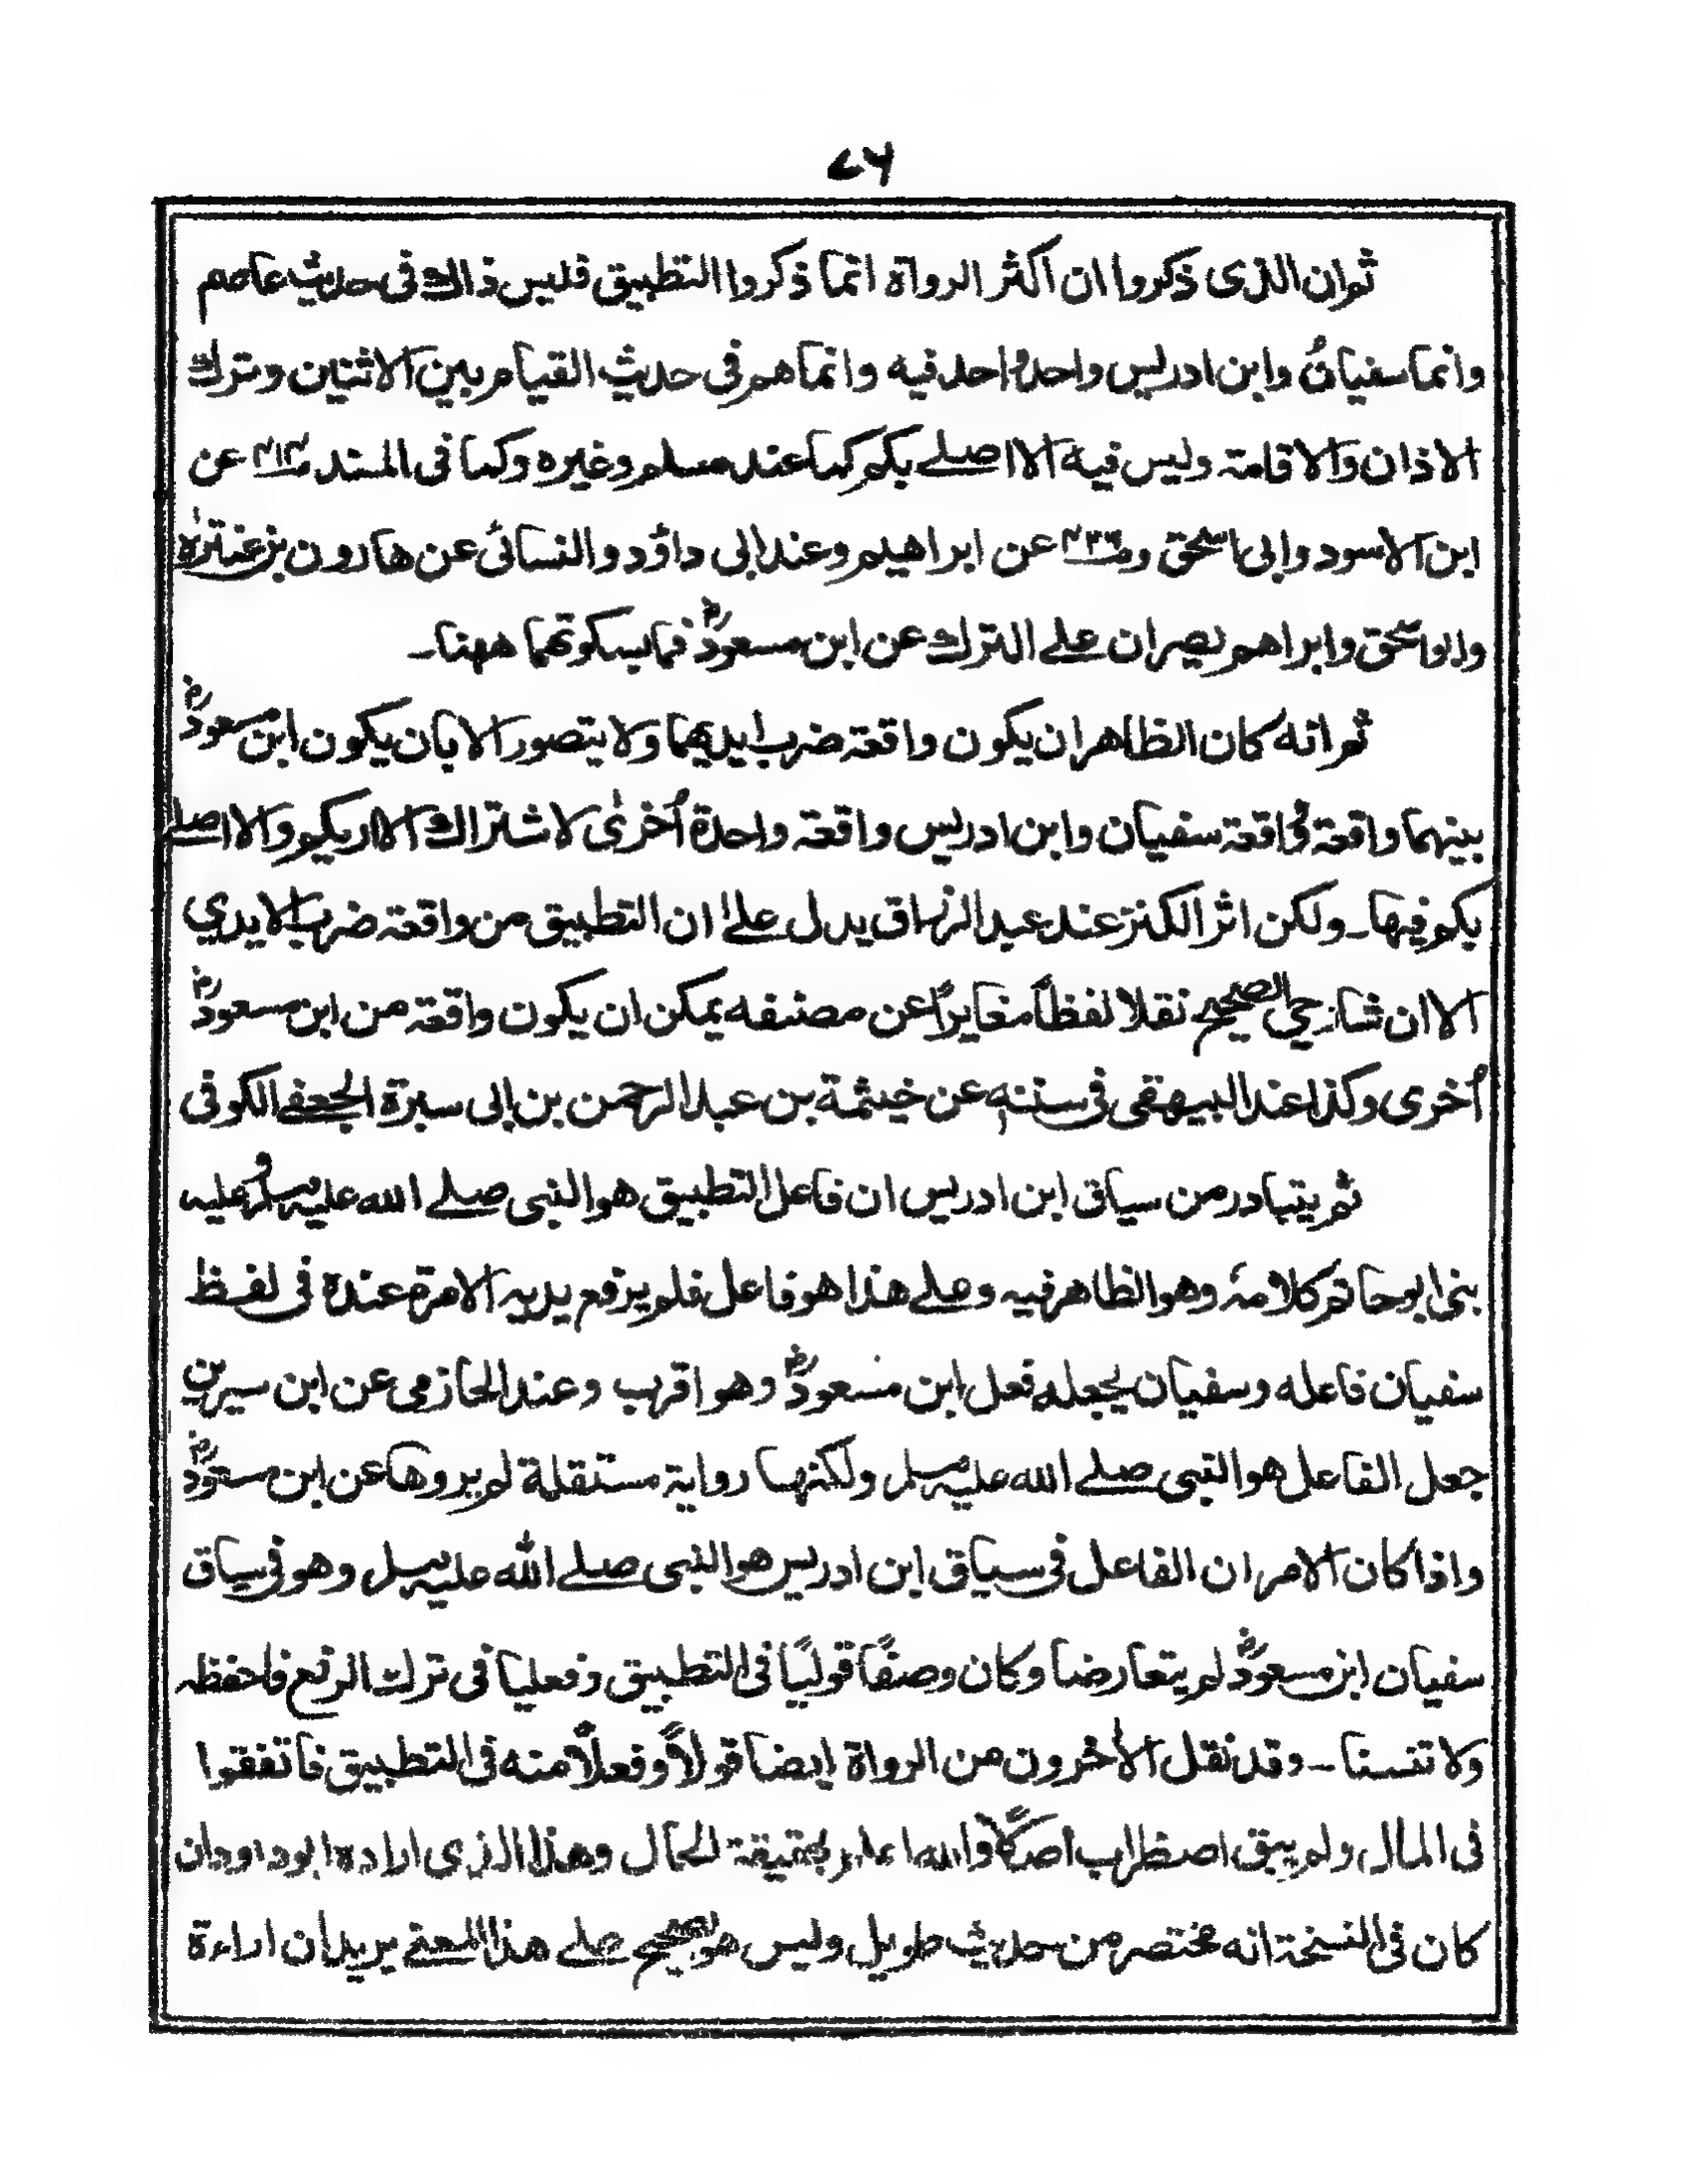 ٧٦
ثم ان الذى ذكروا ان اكثر الرواة انما ذكروا التطبيق فليس ذالك فى حديث عاصم
وانما سفيان وابن ادريس واحد واحد فيه وانما هم فى حديث القيام بين الاثنين وترك
الاذان والاقامة وليس فيه الا اصلے بكم كما عند مسلم وغيره وكما فى المسند عن
ابن الاسود وابى اسحق عن ابراهيم وعند ابى داؤد والنسائى عن هارون بن عنترة
وابو اسحق وابراهيم بصيران علے الترك عن ابن مسعودؓ فما بسكوتهما ههنا۔
ثم انه كان الظاهر ان يكون واقعة ضرب ايديهما ولا يتصور الا بان يكون ابن مسعودؓ
بينهما واقعة وواقعة سفيان وابن ادريس واقعة واحدة أخرىٰ لاشتراك الا اريكم والا اصلے
بكم فيها۔ ولكن اثر الكنز عند عبد الرزاق يدل علےٰ ان التطبيق من واقعة ضرب الايدي
الا ان شارحي الصحيح نقلا لفظاً مغايراً عن مصنفه يمكن ان يكون واقعة من ابن مسعودؓ
أخرى وكذا عند البيهقى فى سننه عن خيثمة بن عبد الرحمن بن ابى سبرة الجعفے الكوفى
ثم يتبادر من سياق ابن ادريس ان فاعل التطبيق هو النبى صلے الله عليه وسلم وعليه
بنى ابو حاتم كلامه وهو الظاهر فيه وعلے هذا هو فاعل فلم يرفع يديه الا مرة عنده فى لفظ
سفيان فاعله وسفيان يجعله فعل ابن مسعودؓ وهو اقرب وعند الحازمى عن ابن سيرين
جعل الفاعل هو النبى صلے الله عليه وسلم ولكنها رواية مستقلة لم يروها عن ابن مسعودؓ
واذا كان الامر ان الفاعل فى سياق ابن ادريس هو النبى صلے الله عليه وسلم وهو فى سياق
سفيان ابن مسعودؓ لم يتعارضا وكان وصفاً قولياً فى التطبيق وفعليا فى ترك الرفع فاحفظه
ولا تنسنا۔ وقد نقل الأخرون من الرواة ايضا قولاً وفعلاً منه فى التطبيق فاتفقوا
فى المال ولم يبق اضطراب أصلاً والله اعلم بحقيقة الحال وهذا الذى اراده ابو داود ان
كان فى النسخة انه مختصر من حديث طويل وليس هو بصحيح علے هذا المعنے يريد ان اراءة